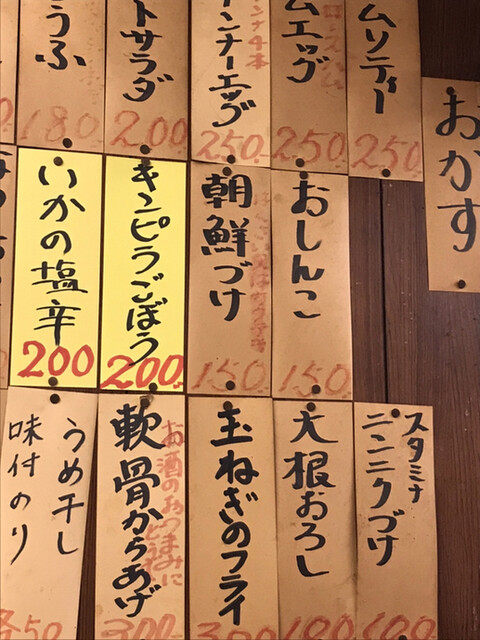 おかず
ムソティー
250
ムエッグ
250
ンナーエッグ
250
トサラダ
200
うふ
180
おしんこ
150
朝鮮づけ
150
キンピラごぼう
200
いかの塩辛
200
スタミナ
ニンニクづけ
100
大根おろし
100
玉ねぎのフライ
300
軟骨からあげ
お酒のおつまみに
どうぞ
300
うめ干し
味付のり
各50